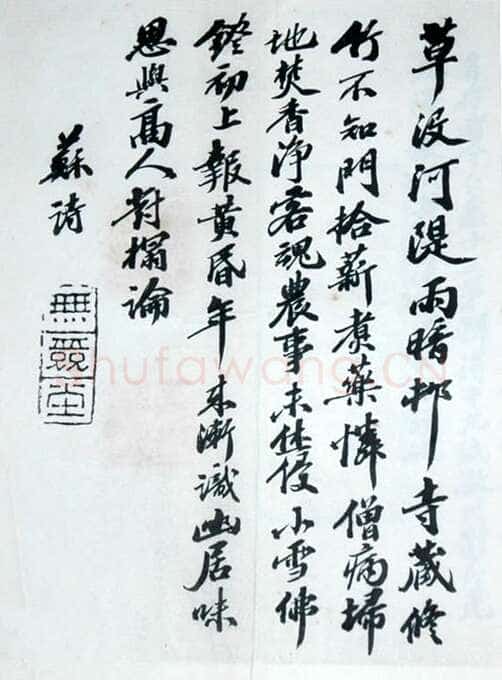 草没河隄雨暗邨寺藏脩
竹不知門拾薪煮藥憐僧病掃
地焚香净客魂農事未休侵小雪佛
鐙初上報黄昏年来漸識幽居味
思與高人對榻論
蘇詩
shufawang.CN